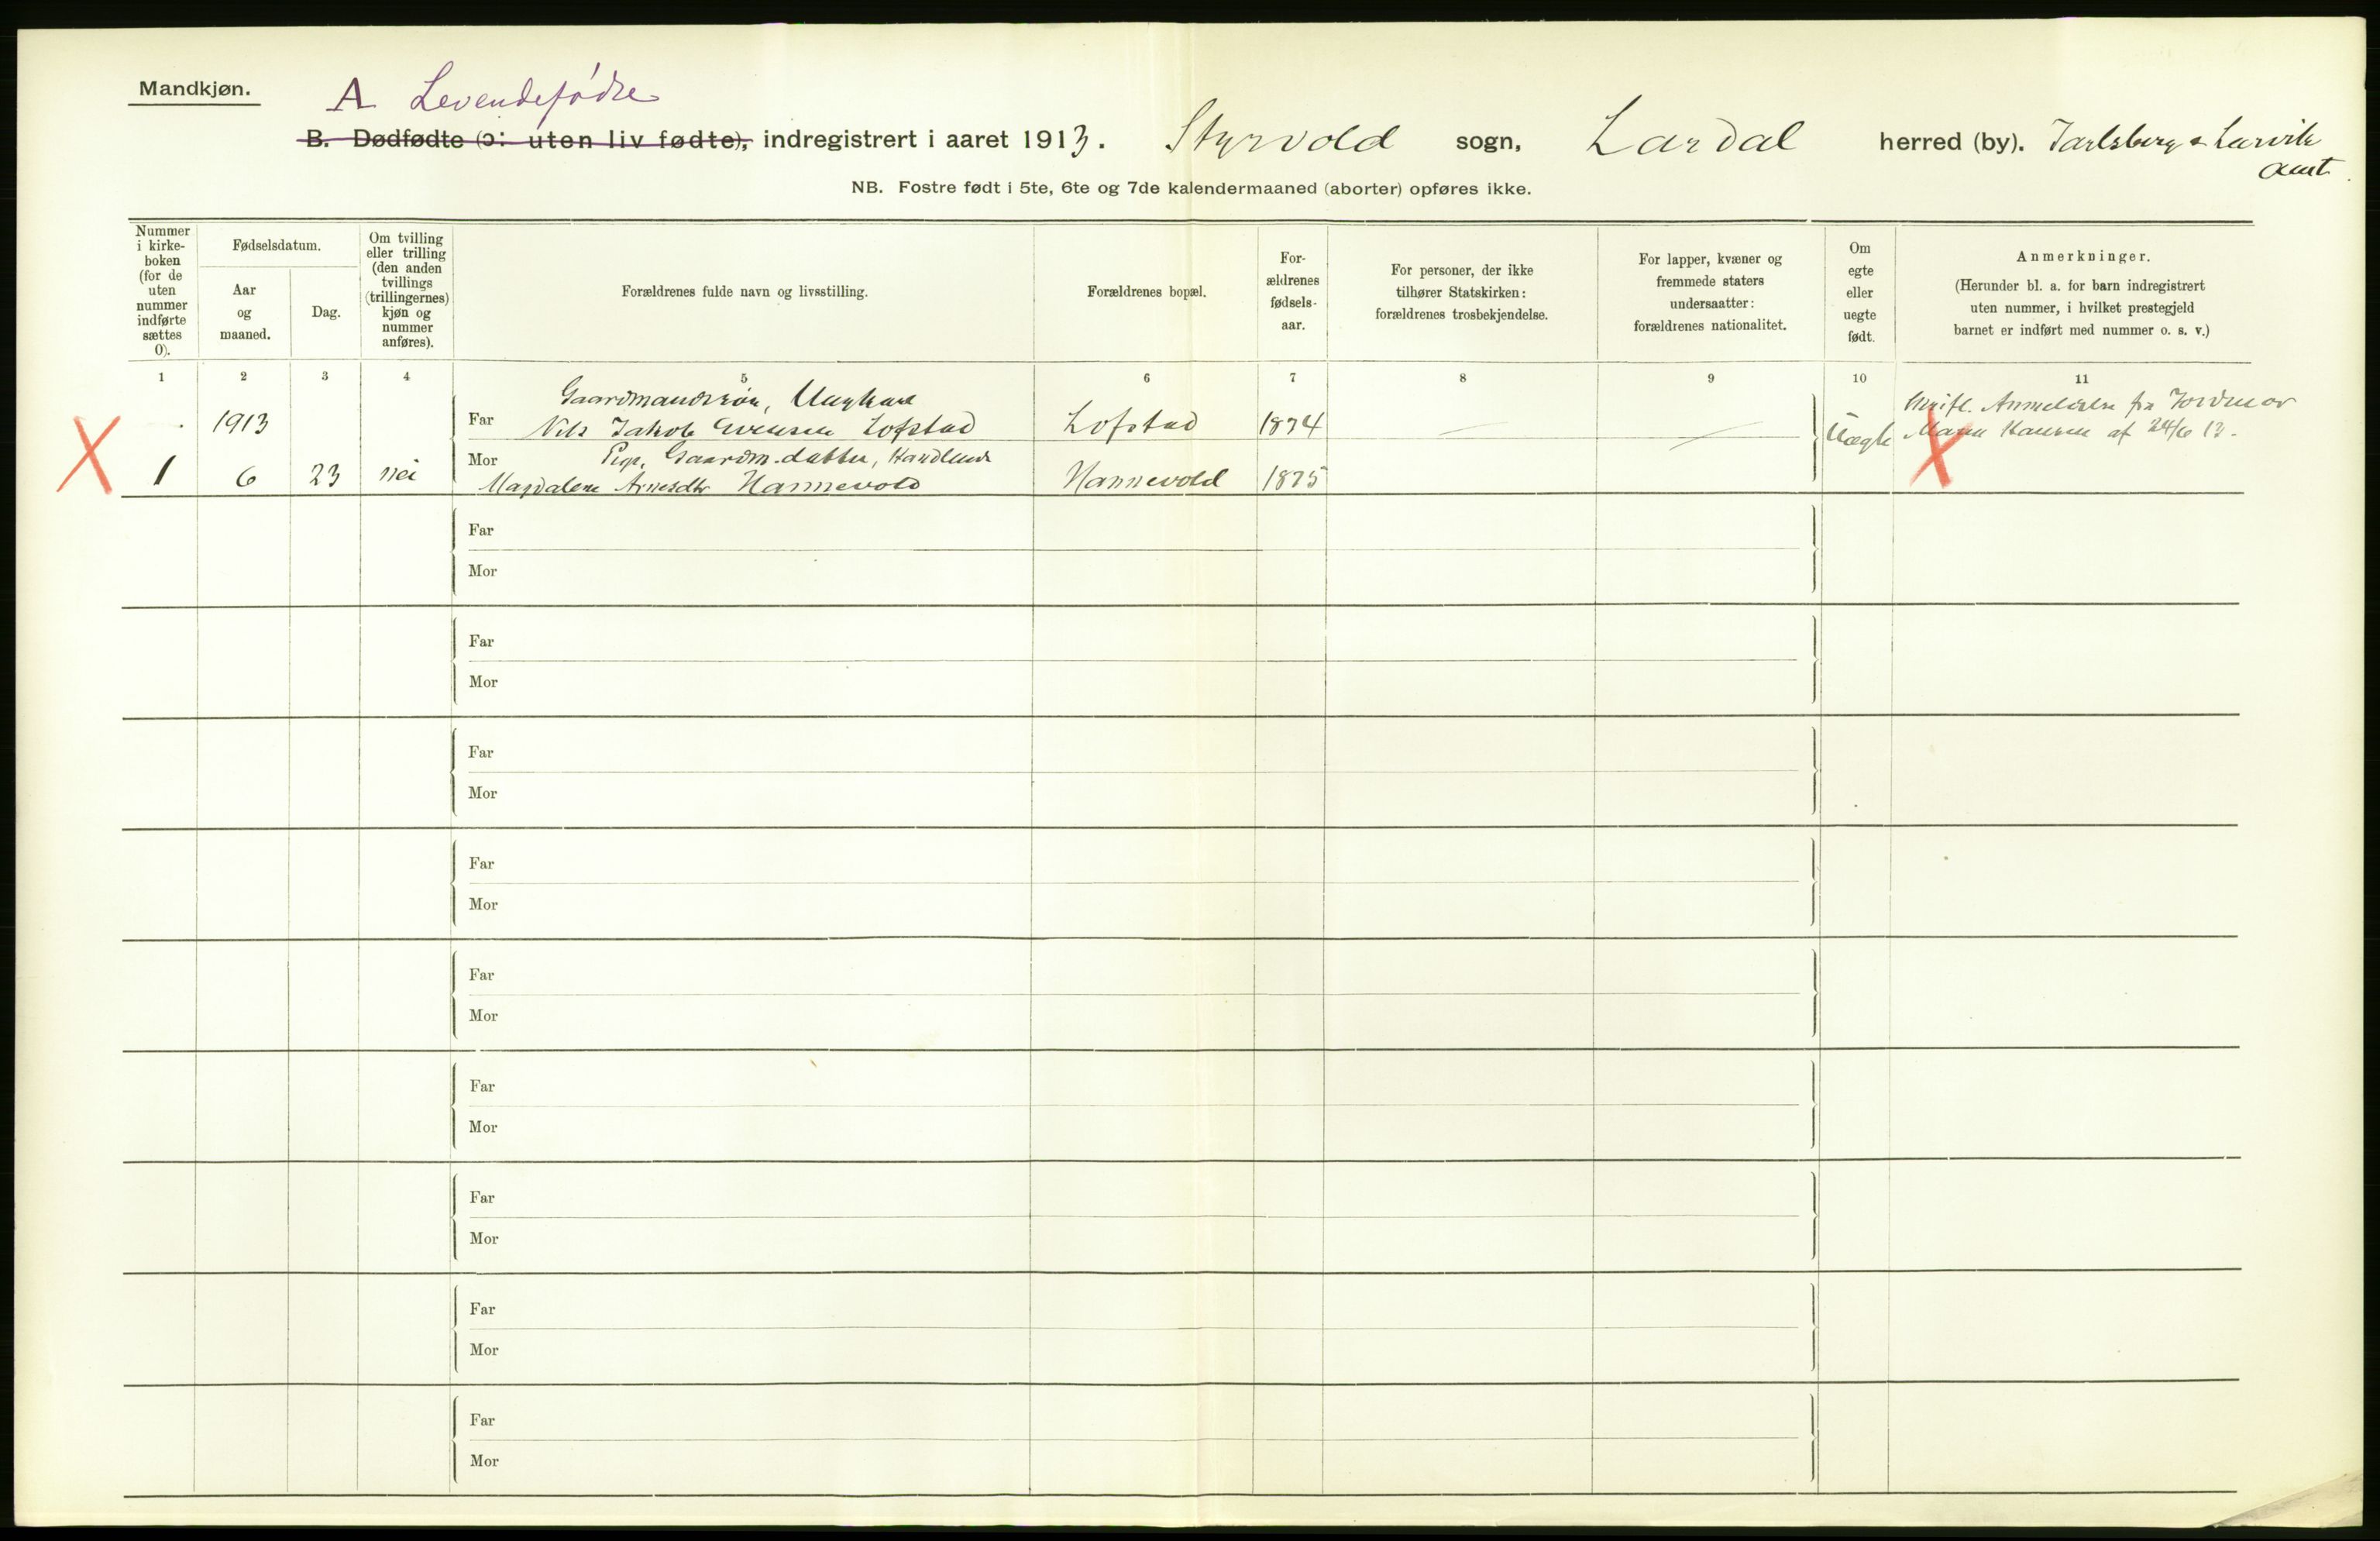 Mandkjøn.
A Levendefødte
B. Dødfødte (ɔ: uten liv fødte), indregistrert i aaret 1913. Styrvold sogn, Lardal herred (by). Jarlsberg & Larvik
Amt.
NB. Fostre født i 5te, 6te og 7de kalendermaaned (aborter) opføres ikke.
Nummer
i kirke-
boken
(for de
uten
nummer
indførte
sættes
0).
Fødselsdatum.
Aar
og
maaned.
Dag.
Om tvilling
eller trilling
(den anden
tvillings
(trillingernes)
kjøn og
nummer
anføres).
Forældrenes fulde navn og livsstilling.
Forældrenes bopæl.
For-
ældrenes
fødsels-
aar.
For personer, der ikke
tilhører Statskirken:
forældrenes trosbekjendelse.
For lapper, kvæner og
fremmede staters
undersaatter:
forældrenes nationalitet.
Om
egte
eller
uegte
født.
Anmerkninger.
(Herunder bl. a. for barn indregistrert
uten nummer, i hvilket prestegjeld
barnet er indført med nummer o. s. v.)
1 2 3 4 5 6 7 8 9 10 11
Gaardmandssøn, Ungkarl
1913 Far Nils Jakob Evensen Lofstad Lofstad 1874 — — Uægte
Mor Pige, Gaardm.datter, Handlende
1 6 23 nei Magdalene Arnesdtr Hannevold Hannevold 1875
Skriftl. Anmeldelse fra Jordmor
Hansen af 24/6 13.
Far
Mor
Far
Mor
Far
Mor
Far
Mor
Far
Mor
Far
Mor
Far
Mor
Far
Mor
Far
Mor